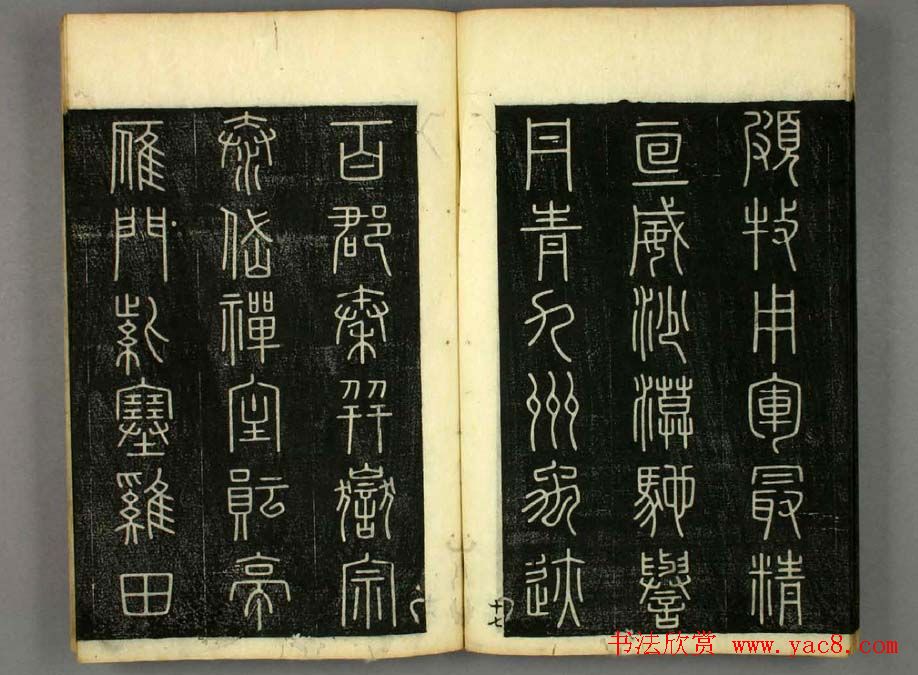 頗牧用軍最精
宣威沙漠馳譽
丹青九州禹迹
十七
百郡秦并嶽宗
泰岱禪主云亭
雁門紫塞雞田
书法欣赏 www.yac8.com